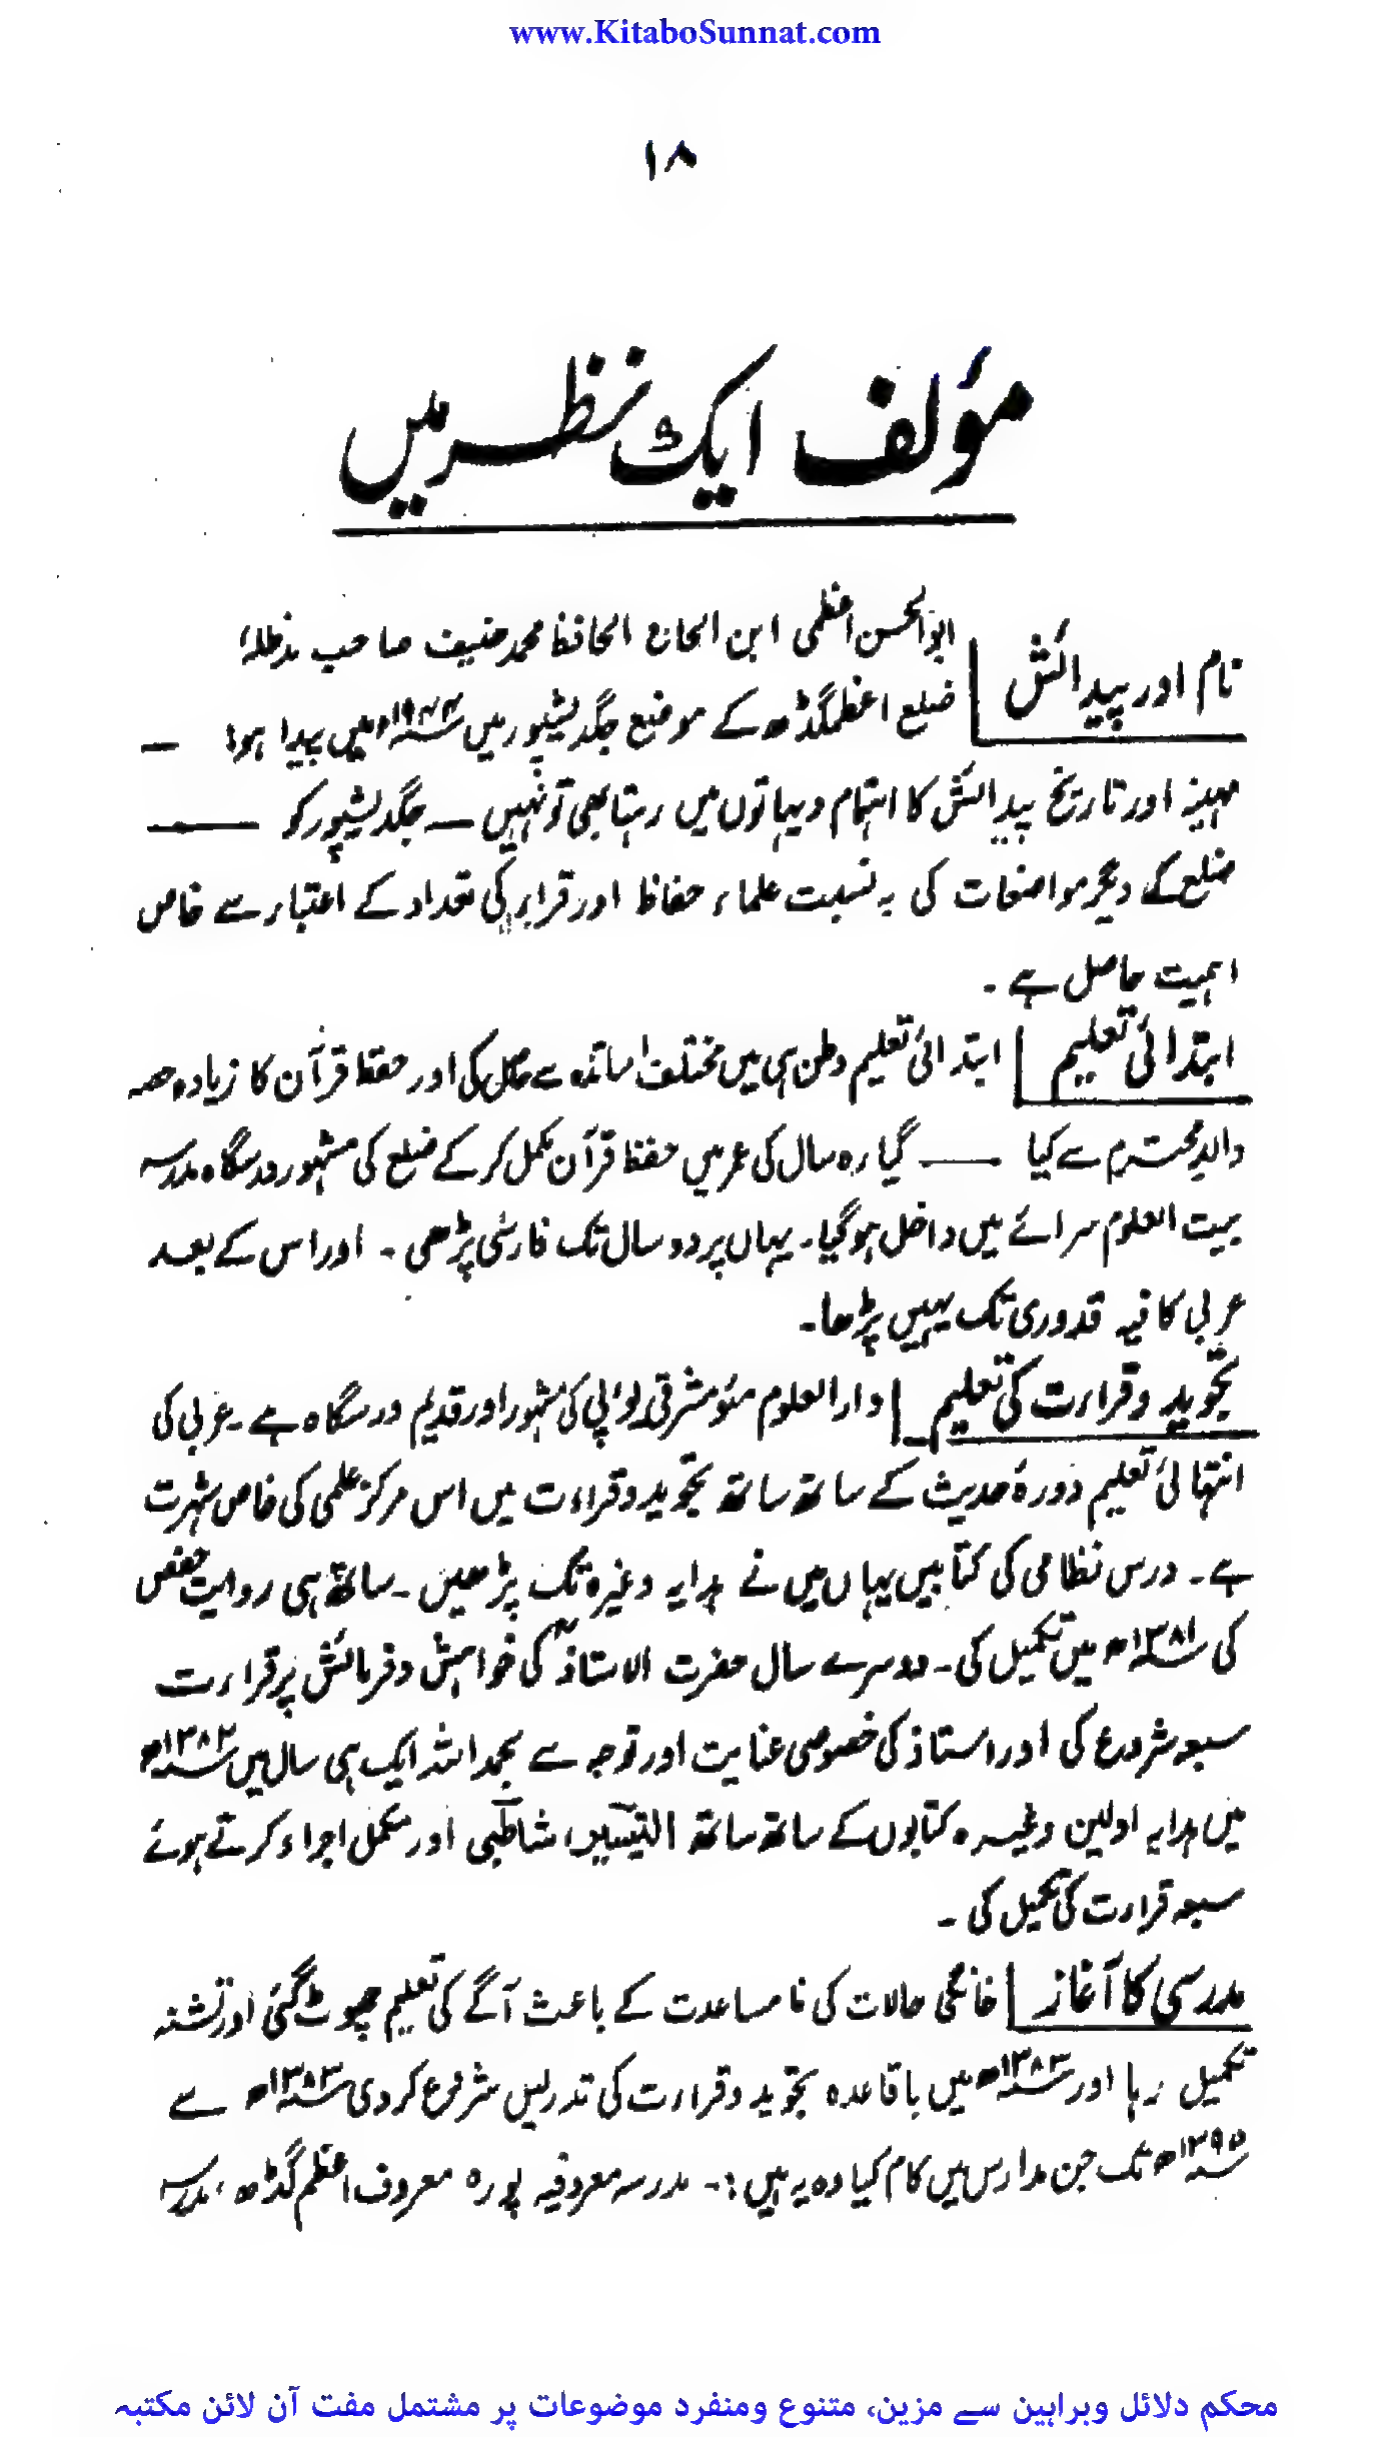 www.KitaboSunnat.com
۱۸
مؤلف ایک نظر میں
نام اور پیدائش ابوالحسن اعظمی ابن الحاج الحافظ محمد حنیف صاحب مدظلہٗ
ضلع اعظمگڈھ کے موضع جگدیشپور میں ۱۹۴۴ء میں پیدا ہوا —
مہینہ اور تاریخ پیدائش کا اہتمام دیہاتوں میں رہتا بھی تو نہیں — جگدیشپور کو —
ضلع کے دیگر مواضعات کی بہ نسبت علماء حفاظ اور قراء کی تعداد کے اعتبار سے خاص
اہمیت حاصل ہے ۔
ابتدائی تعلیم ابتدائی تعلیم وطن ہی میں مختلف اساتذہ سے حاصل کی اور حفظ قرآن کا زیادہ حصہ
والد محترم سے کیا — گیارہ سال کی عمر میں حفظ قرآن مکمل کر کے ضلع کی مشہور درسگاہ مدرسہ
بیت العلوم سرائے میں داخل ہو گیا۔ یہاں پر دو سال تک فارسی پڑھی ۔ اور اس کے بعد
عربی کافیہ قدوری تک یہیں پڑھا۔
تجوید و قراءت کی تعلیم دارالعلوم مئو مشرقی یوپی کی مشہور اور قدیم درسگاہ ہے ۔ عربی کی
انتہائی تعلیم دورۂ حدیث کے ساتھ ساتھ تجوید و قراءت میں اس مرکز علمی کی خاص شہرت
ہے ۔ درس نظامی کی کتابیں یہاں میں نے ہدایہ وغیرہ تک پڑھیں ۔ ساتھ ہی روایت حفص
کی ۱۳۸۱ھ میں تکمیل کی ۔ دوسرے سال حضرت الاستاذؒ کی خواہش و فرمائش پر قراءت
سبعہ شروع کی اور استاذ کی خصوصی عنایت اور توجہ سے بحمد اللہ ایک ہی سال میں ۱۳۸۲ھ
میں ہدایہ اولین وغیرہ کتابوں کے ساتھ ساتھ التیسیر، شاطبی اور مکمل اجراء کرتے ہوئے
سبعہ قراءت کی تکمیل کی ۔
مدرسی کا آغاز خانگی حالات کی نامساعدت کے باعث آگے کی تعلیم چھوٹ گئی اور تشنہ
تکمیل رہا اور ۱۳۸۳ھ میں باقاعدہ تجوید و قراءت کی تدریس شروع کر دی ۱۳۸۳ھ سے
۱۳۹۵ھ تک جن مدارس میں کام کیا وہ یہ ہیں :۔ مدرسہ معروفیہ پورہ معروف اعظم گڈھ ، مدرسہ
محکم دلائل وبراہین سے مزین، متنوع ومنفرد موضوعات پر مشتمل مفت آن لائن مکتبہ